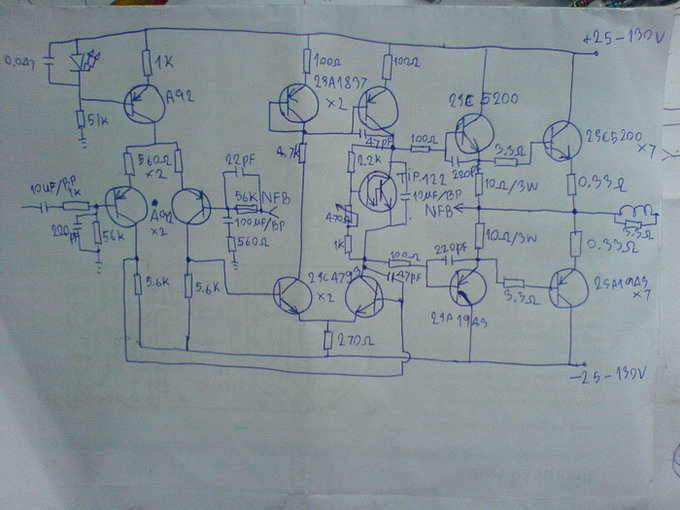 +25-130V
0,047
1K
100Ω
2SA1837
x2
100Ω
A92
51K
2SC5200
47pF
4.7K
100Ω
3.3Ω
2SC5200
x7
560Ω
x2
22pF
2.2K
TiP122
220pF
10Ω/3W
0.33Ω
10UF/BP
1K
A92
x2
56K
NFB
10UF/BP
NFB
220pF
56K
100UF/BP
470Ω
3.3Ω
560Ω
1K
10Ω/3W
0.33Ω
100Ω
220pF
5.6K
5.6K
2SC4793
x2
47pF
3.3Ω
2SA1943
x7
2SA1943
270Ω
-25-130V